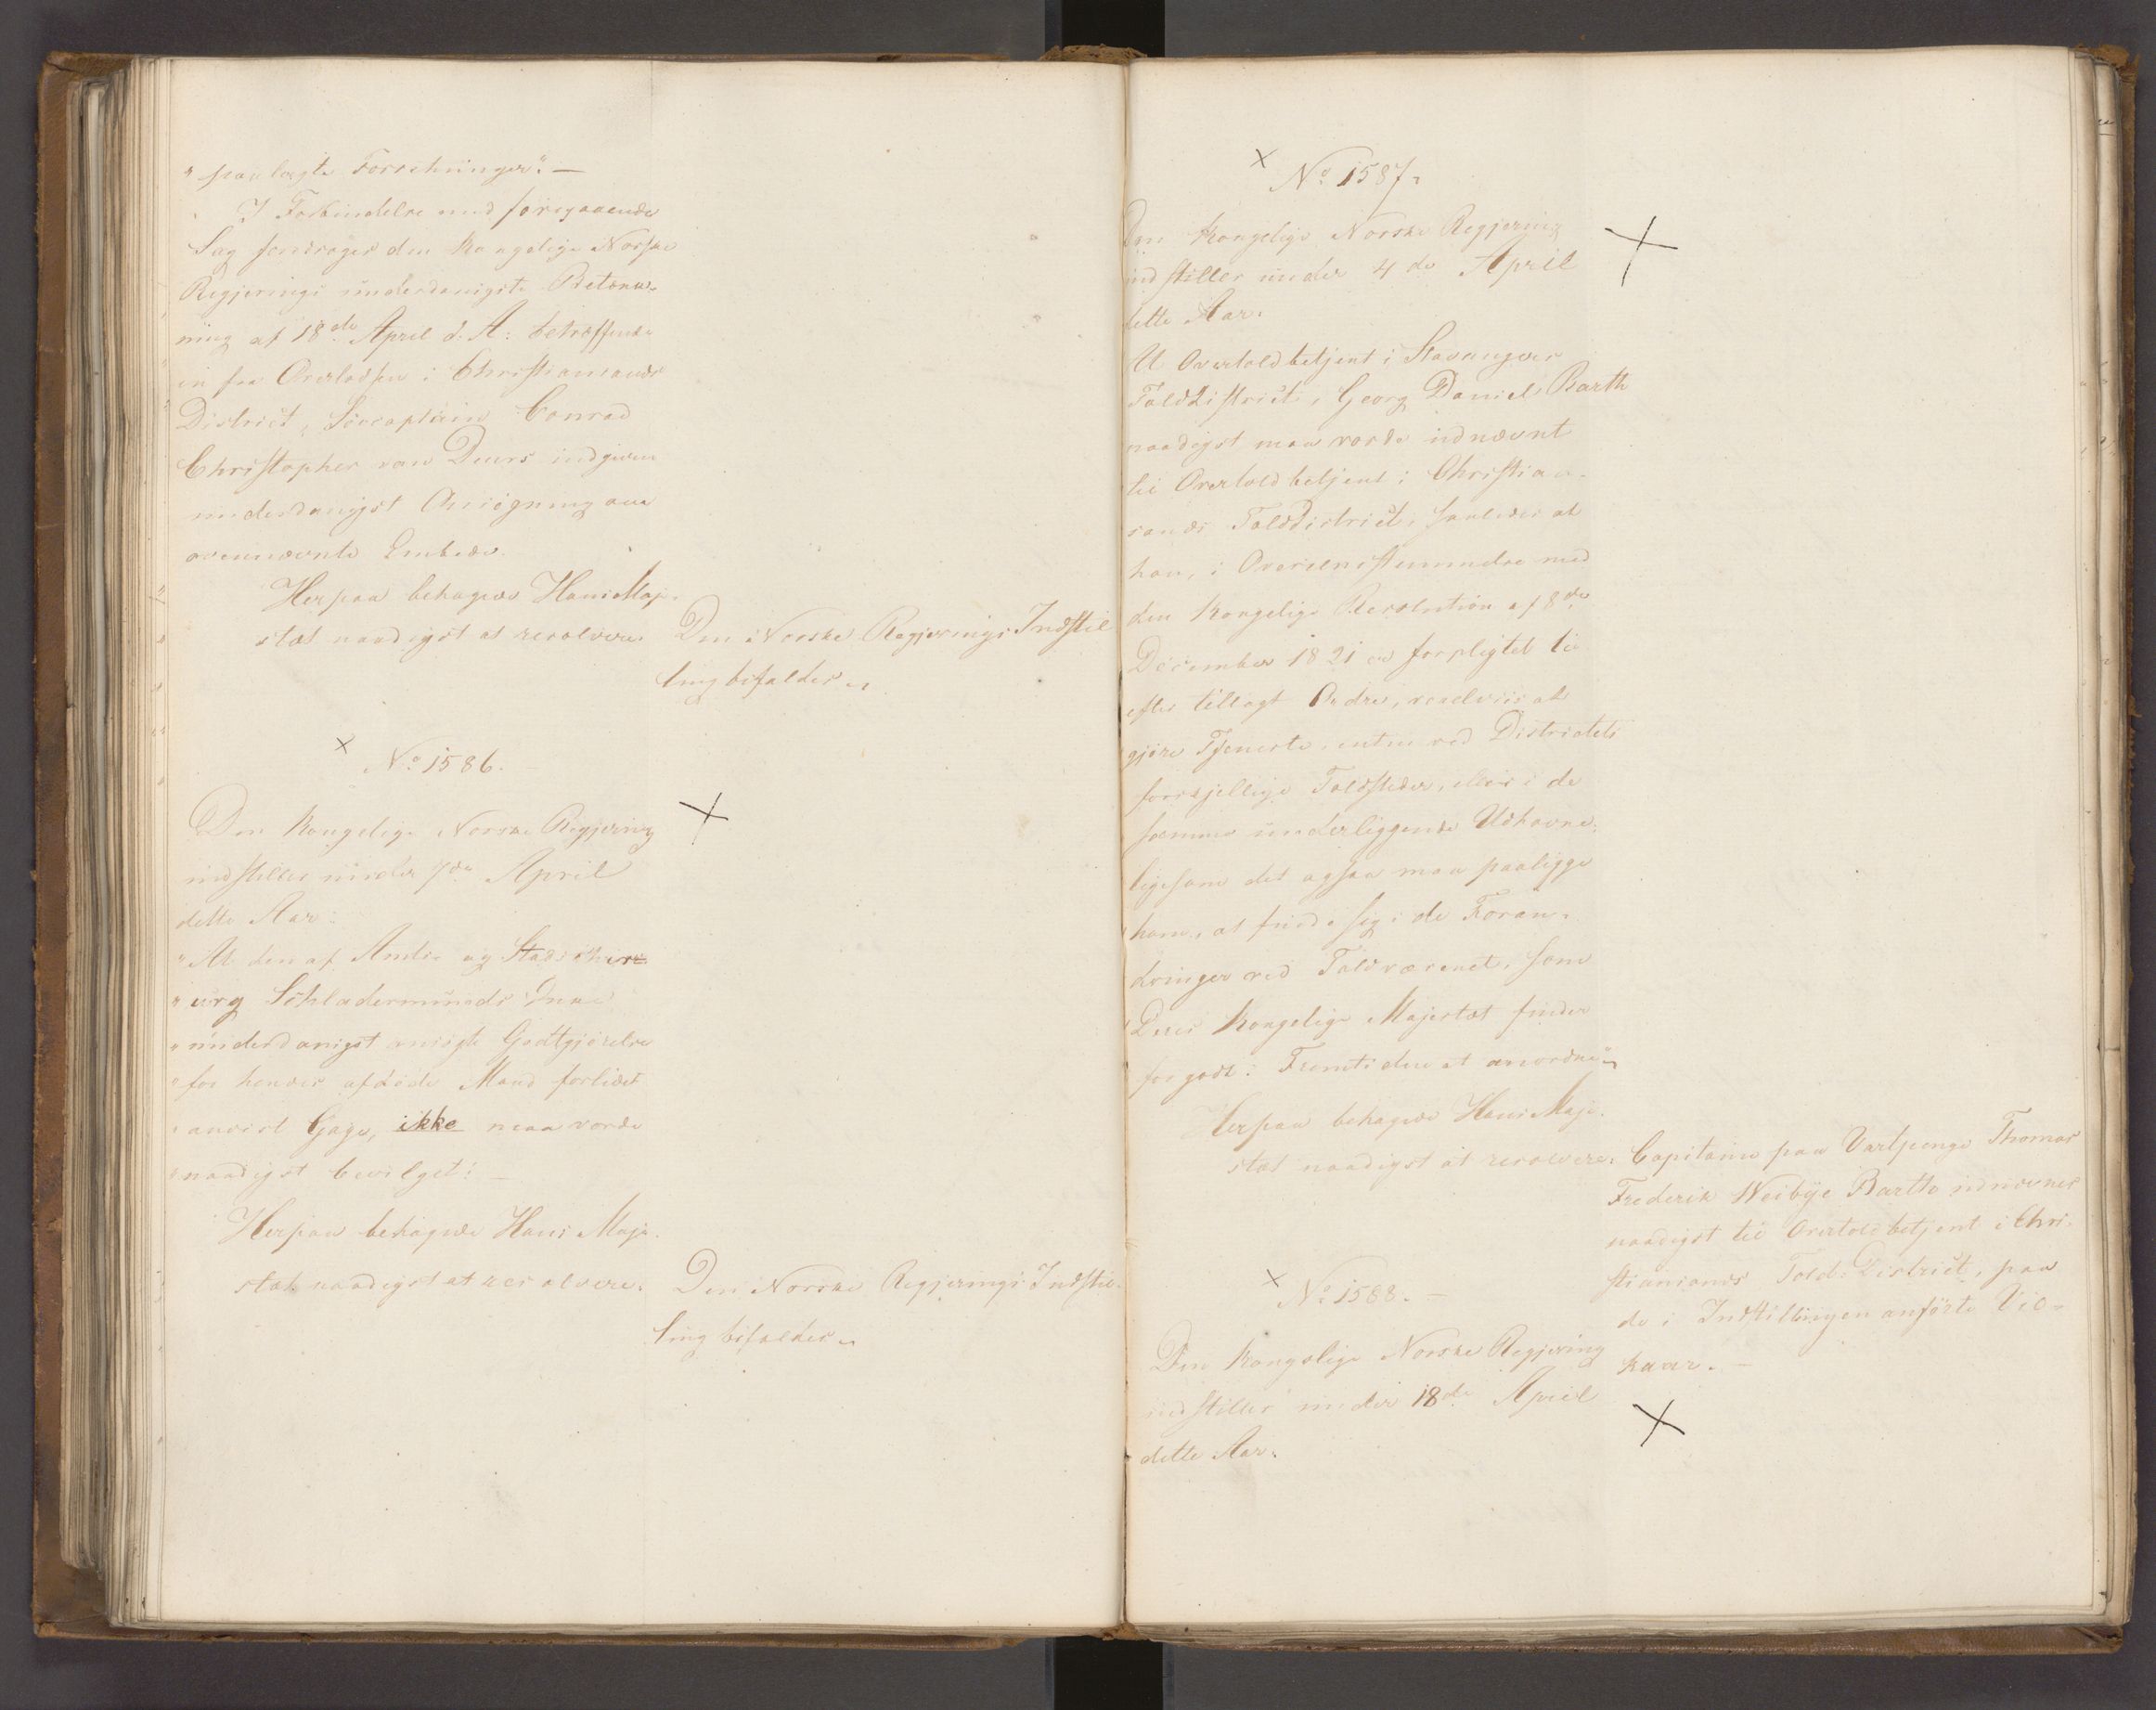 "paalagte Forretninger." —
I Forbindelse med foregaaende
Sag foredroges den Kongelige Norske
Regjerings underdanigste Betænk-
ning af 18de April d. A: betræffende
en fra Overlodsen i Christiansands
District, Søecaptain Conrad
Christopher van Deurs indgiven
underdanigst Ansøgning om
ovennævnte Embede.
Herpaa behagede Hans Maje-
stæt naadigst at resolvere:
Den Norske Regjerings Indstil
ling bifaldes.
× No 1586.
Den Kongelige Norske Regjering
indstiller under 7de April
dette Aar:
"At den af Amts- og Stadschirur-
"urg Schladermunds Enke
"underdanigst ansøgte Godtgjørelse
"for hendes afdøde Mand forlidet
"anviist Gage, ikke maa vorde
"naadigst bevilget." —
Herpaa behagede Hans Maje-
stæt naadigst at resolvere:
Den Norske Regjerings Indstil-
ling bifaldes.
× No 1587.
Den Kongelige Norske Regjering
indstiller under 4de April
dette Aar:
At Overtoldbetjent i Stavanger
Tolddistrict, Georg Daniel Barth
naadigst maa vorde udnævnt
til Overtoldbetjent i Christian-
sands Tolddistrict, saaledes at
han, i Overensstemmelse med
den Kongelige Resolution af 8de
December 1821 er forpligtet til
efter tillagt Ordre, vexelviis at
gjøre Tjeneste, enten ved Districtets
forskjellige Toldsteder, eller i de
samme underliggende Udhavne,
ligesom det ogsaa maa paaligge
ham, at finde sig i de Foran-
dringer ved Toldvæsenet, som
Deres Kongelige Majestæt finder
for godt i Fremtiden at anordne."
Herpaa behagede Hans Maje-
stæt naadigst at resolvere:
Capitaine paa Vartpenge Thomas
Frederik Weibye Barth udnævnes
naadigst til Overtoldbetjent i Chri-
stiansands Told-District, paa
de i Indstillingen anførte Vil-
kaar. —
× No 1588. —
Den Kongelige Norske Regjering
indstiller under 18de April
dette Aar: